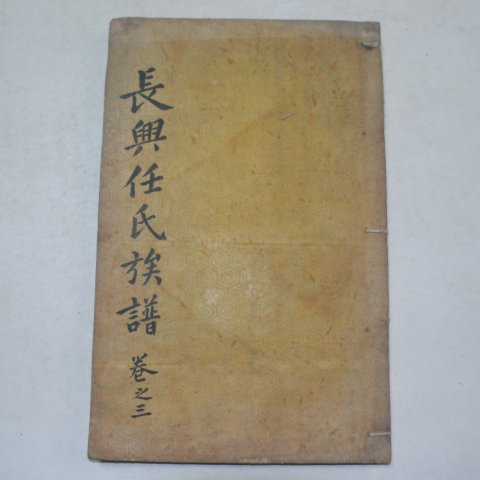 長興任氏族譜 卷之三